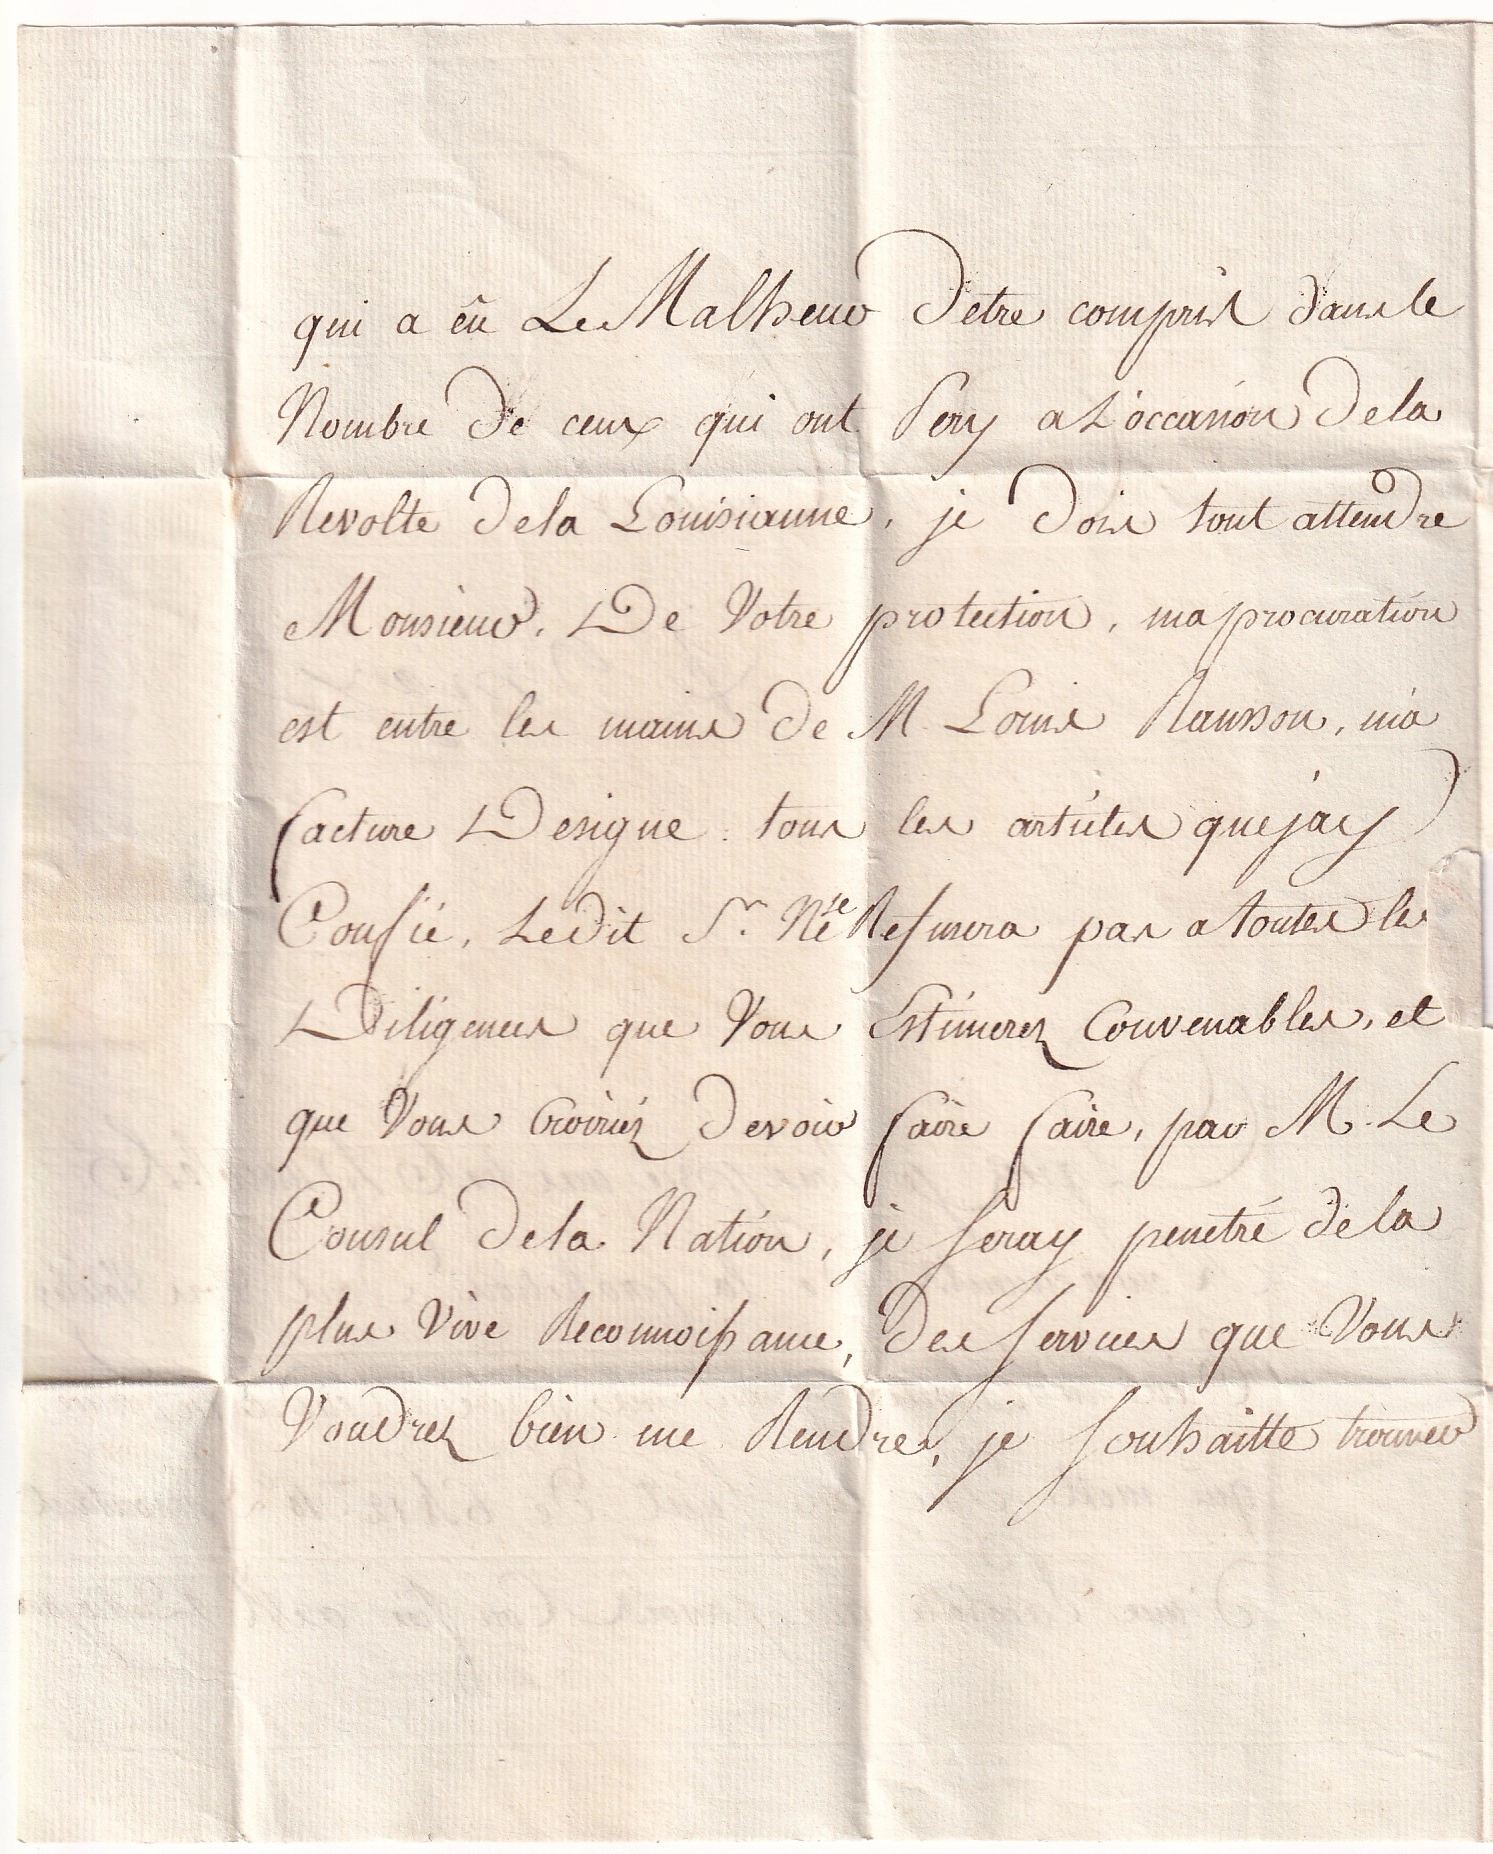 qui a êu Le Malheur D'etre compris dans le
Nombre De ceux qui ont Pery a L'occasion De la
Revolte De la Louisianne, je Dois tout attendre
Monsieur, De Votre protection, ma procuration
est entre les mains De M. Louis Ransson, ma
facture Designe tous les articles que jay
Confié, Ledit Sr. Ne se Refusera pas a toutes les
Diligences que Vous Estimerez Convenables, et
que Vous Croiriéz Devoir faire faire, par M. Le
Consul De la Nation, je seray penetré De la
plus Vive Reconnoissance, Des services que Vous
Voudrez bien me Rendre, je souhaitte trouver